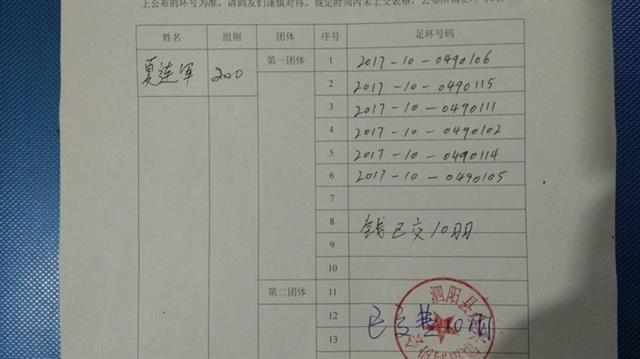 上公布的环号为准，请鸽友们谨慎对待。规定时间内未上交表格，公布
姓名 组别 团体 序号 足环号码
夏连军 200 第一团体 1 2017-10-0490106
2 2017-10-0490115
3 2017-10-0490111
4 2017-10-0490102
5 2017-10-0490114
6 2017-10-0490105
7
8 钱已交10日
9
10
第二团体 11
12
13
泗阳县